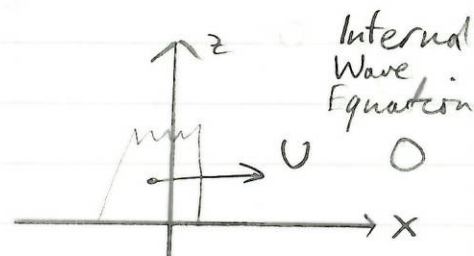 Internal
Wave
Equation
z
U O
x